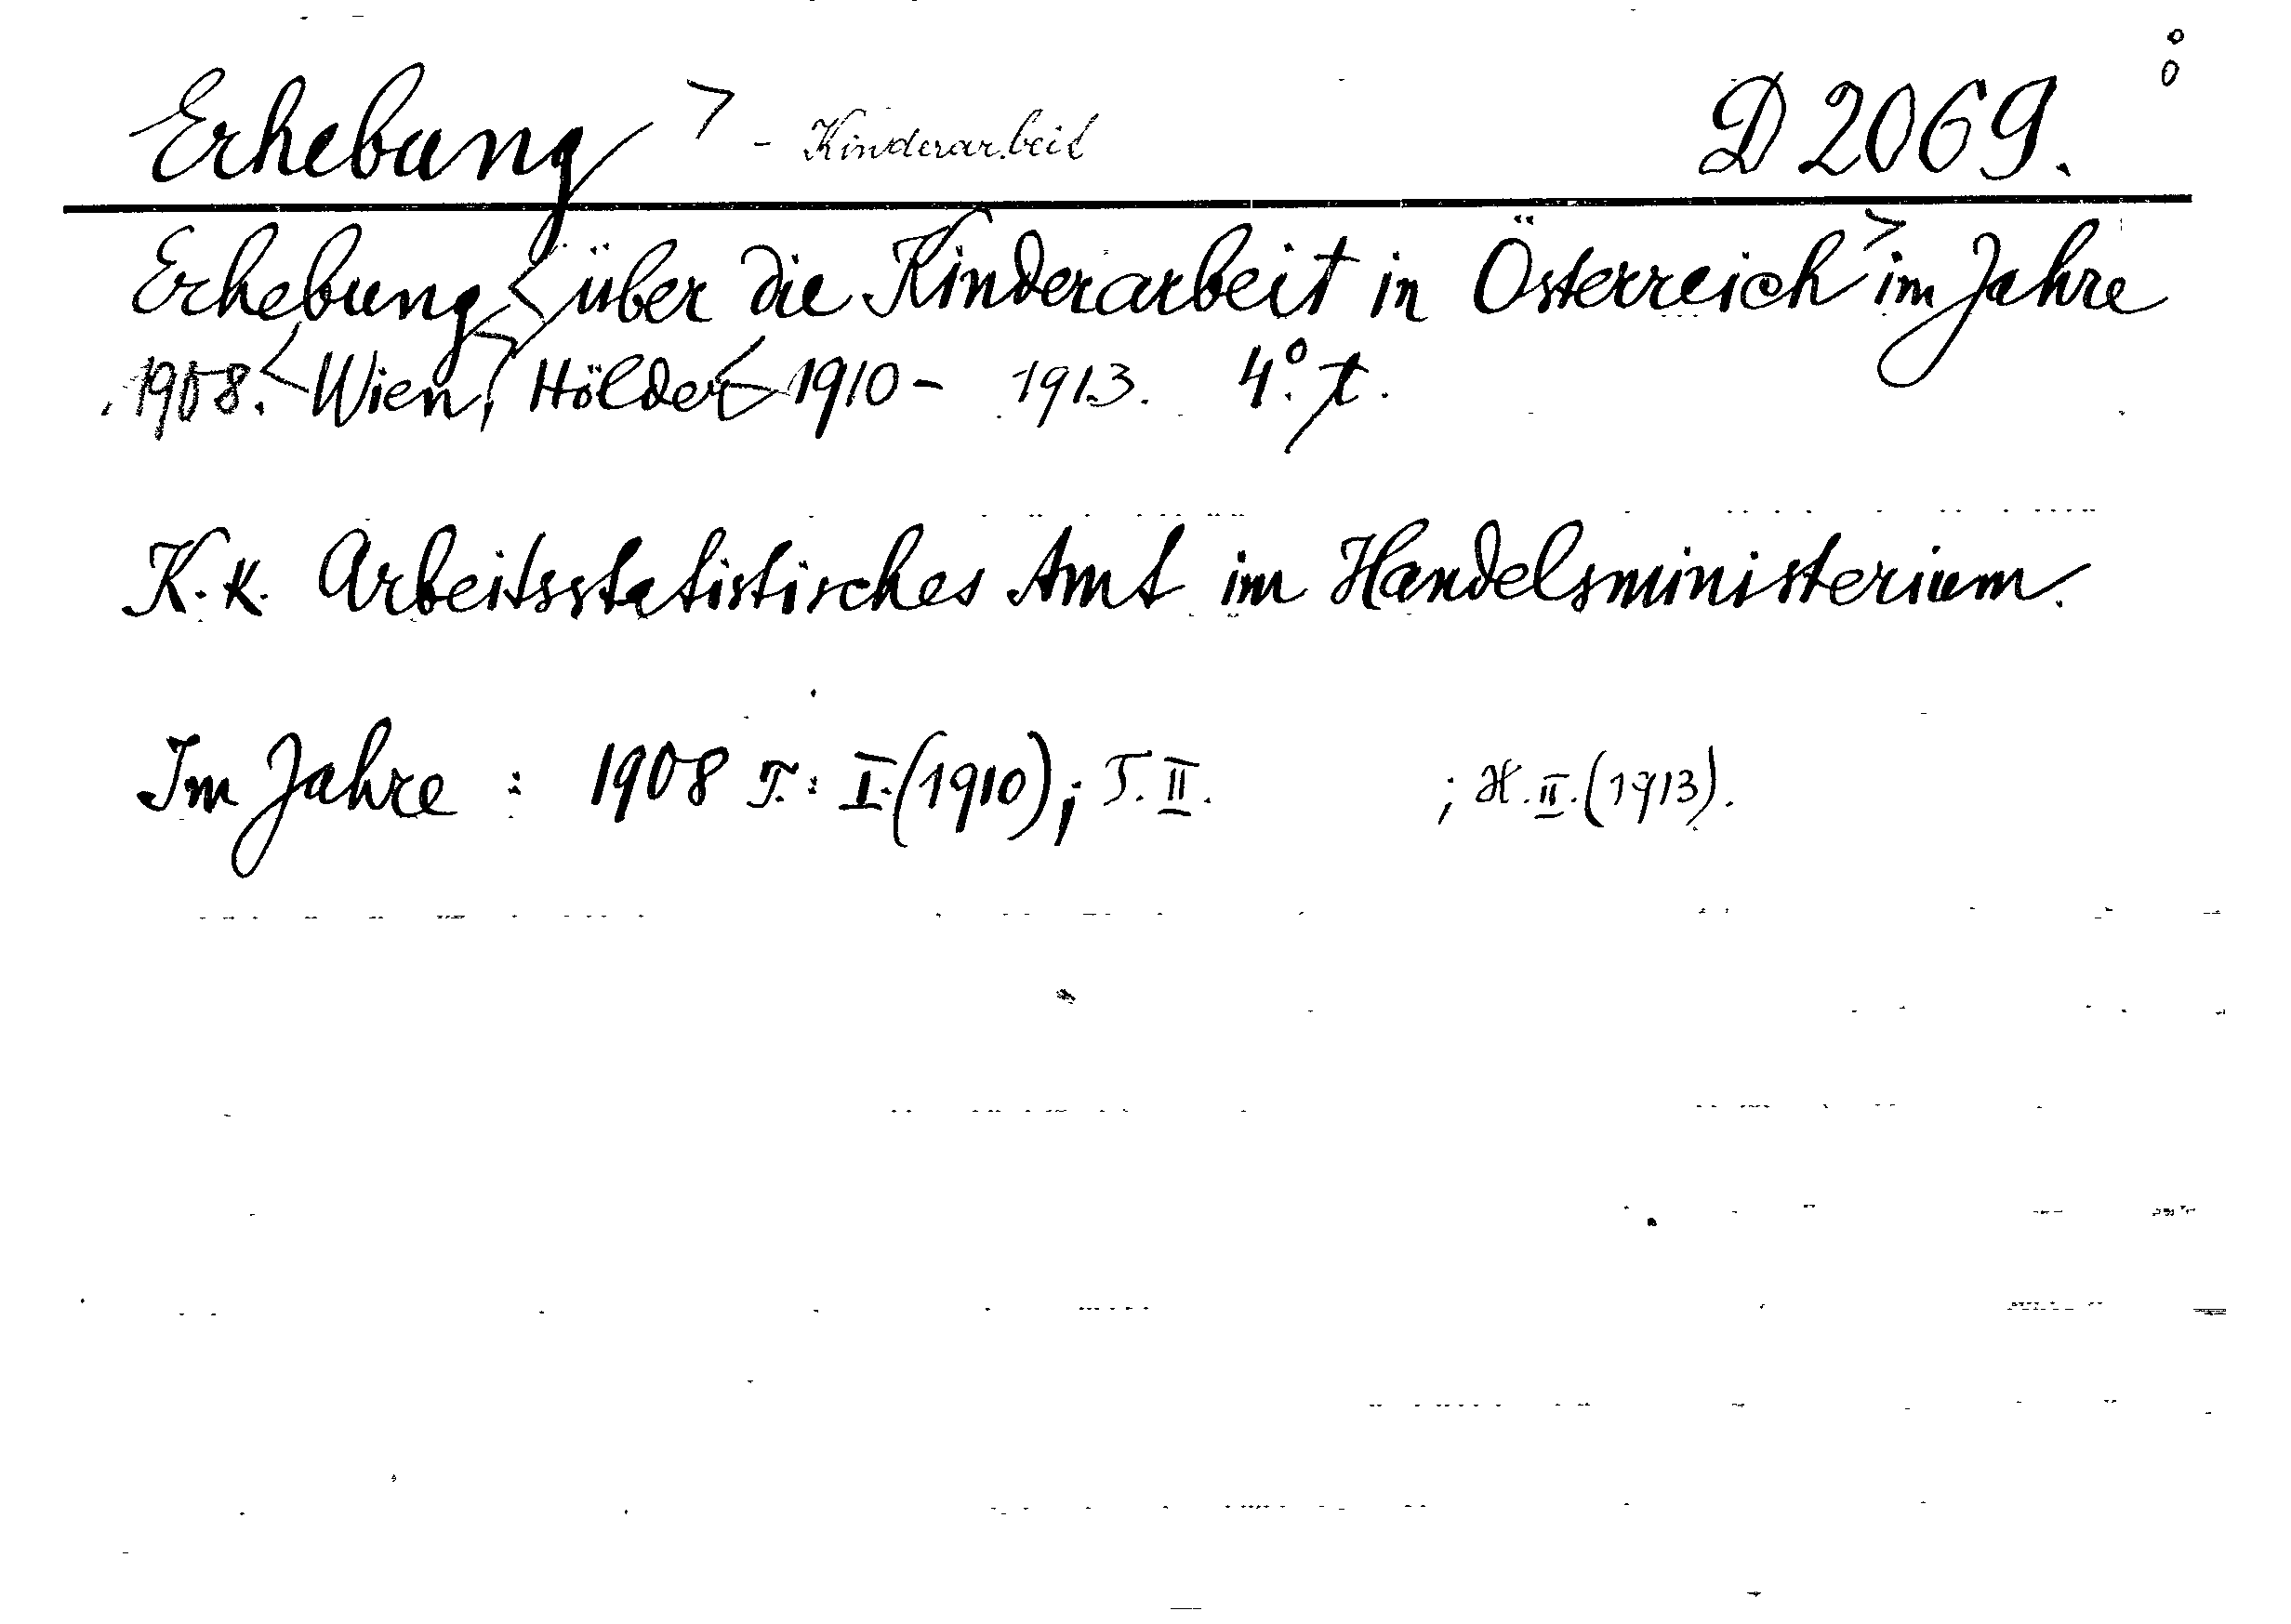 Erhebung > - Kinderarbeit D 2069.
Erhebung < über die Kinderarbeit in Österreich > im Jahre
1908. < Wien, Hölder < 1910 - 1913. 4°. t.
K. K. Arbeitsstatistisches Amt im Handelsministerium.
Im Jahre : 1908 T. : I. (1910) ; T. II. ; H. II. (1913).